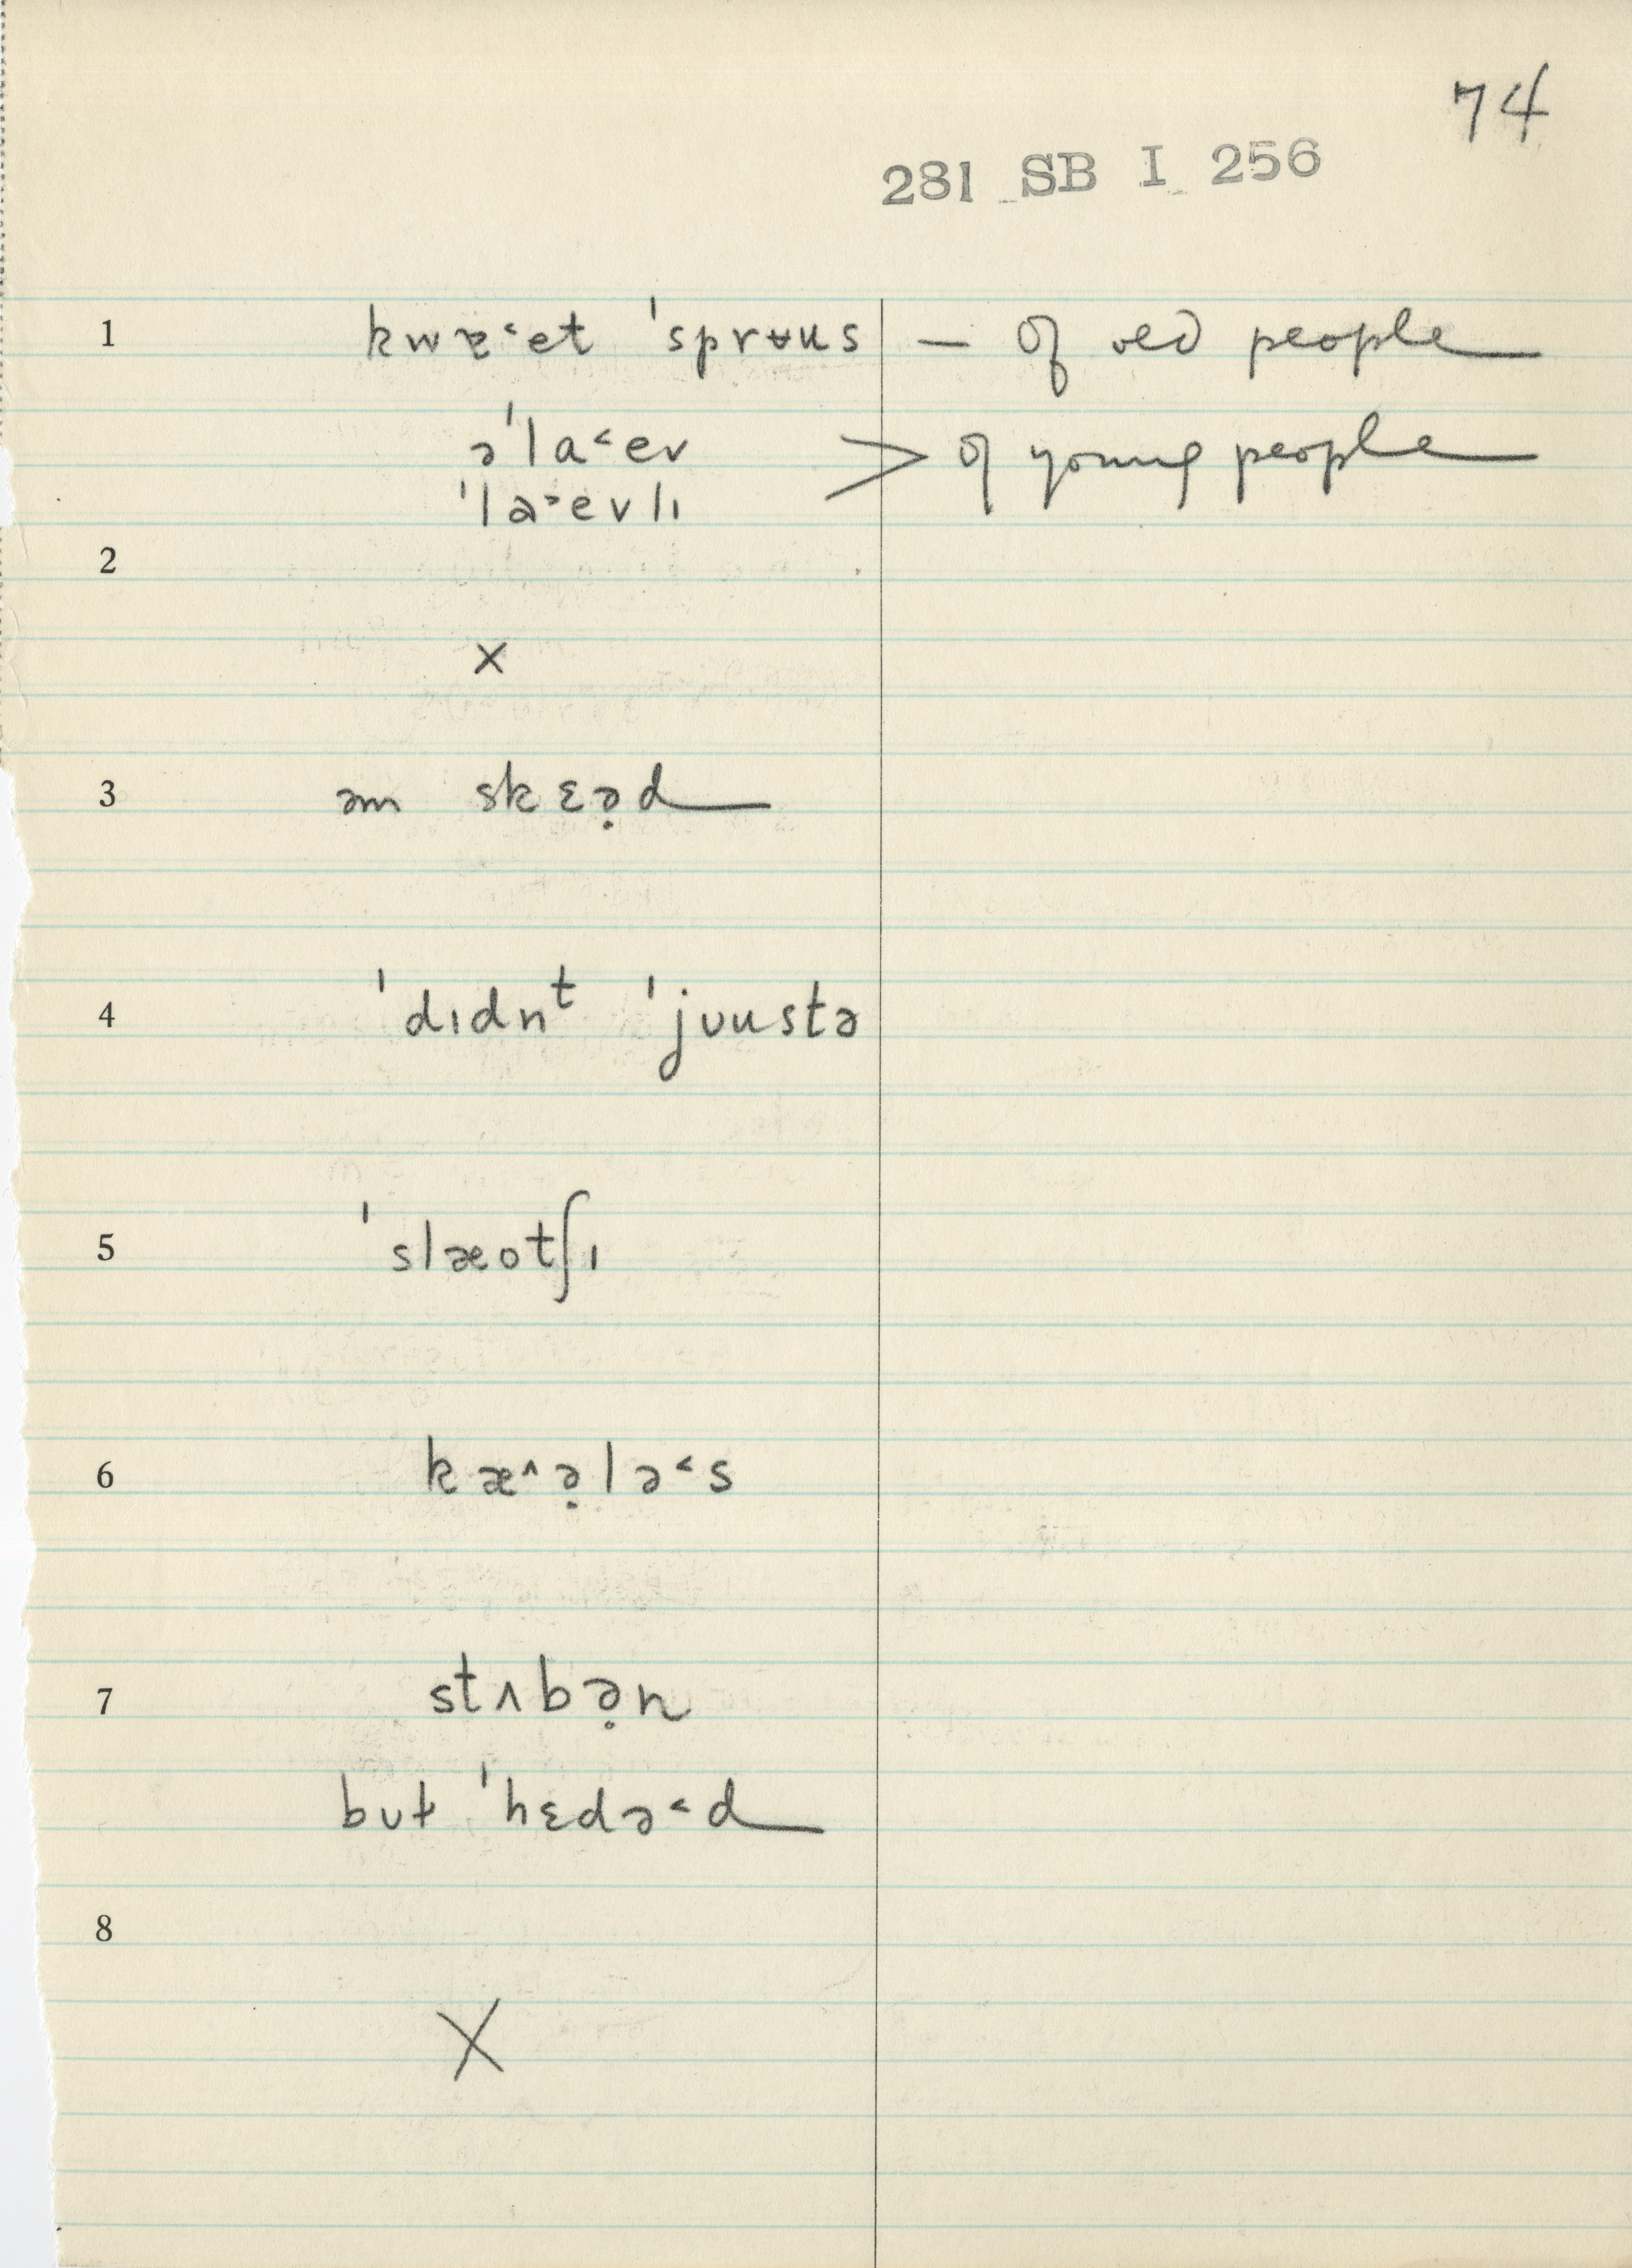 74
281 SB I 256
1 kwɐ˂et ˈsprʉus — of old people
əˈla˂ev > of young people
ˈla˃evlɪ
2
×
3 əm skɛə̣d
4 ˈdɪdnᵗ ˈjᴜustə
5 ˈslæotʃɪ
6 kæ^ə̣lə˂s
7 stʌbə̣n
but ˈhɛdə˂d
8
X